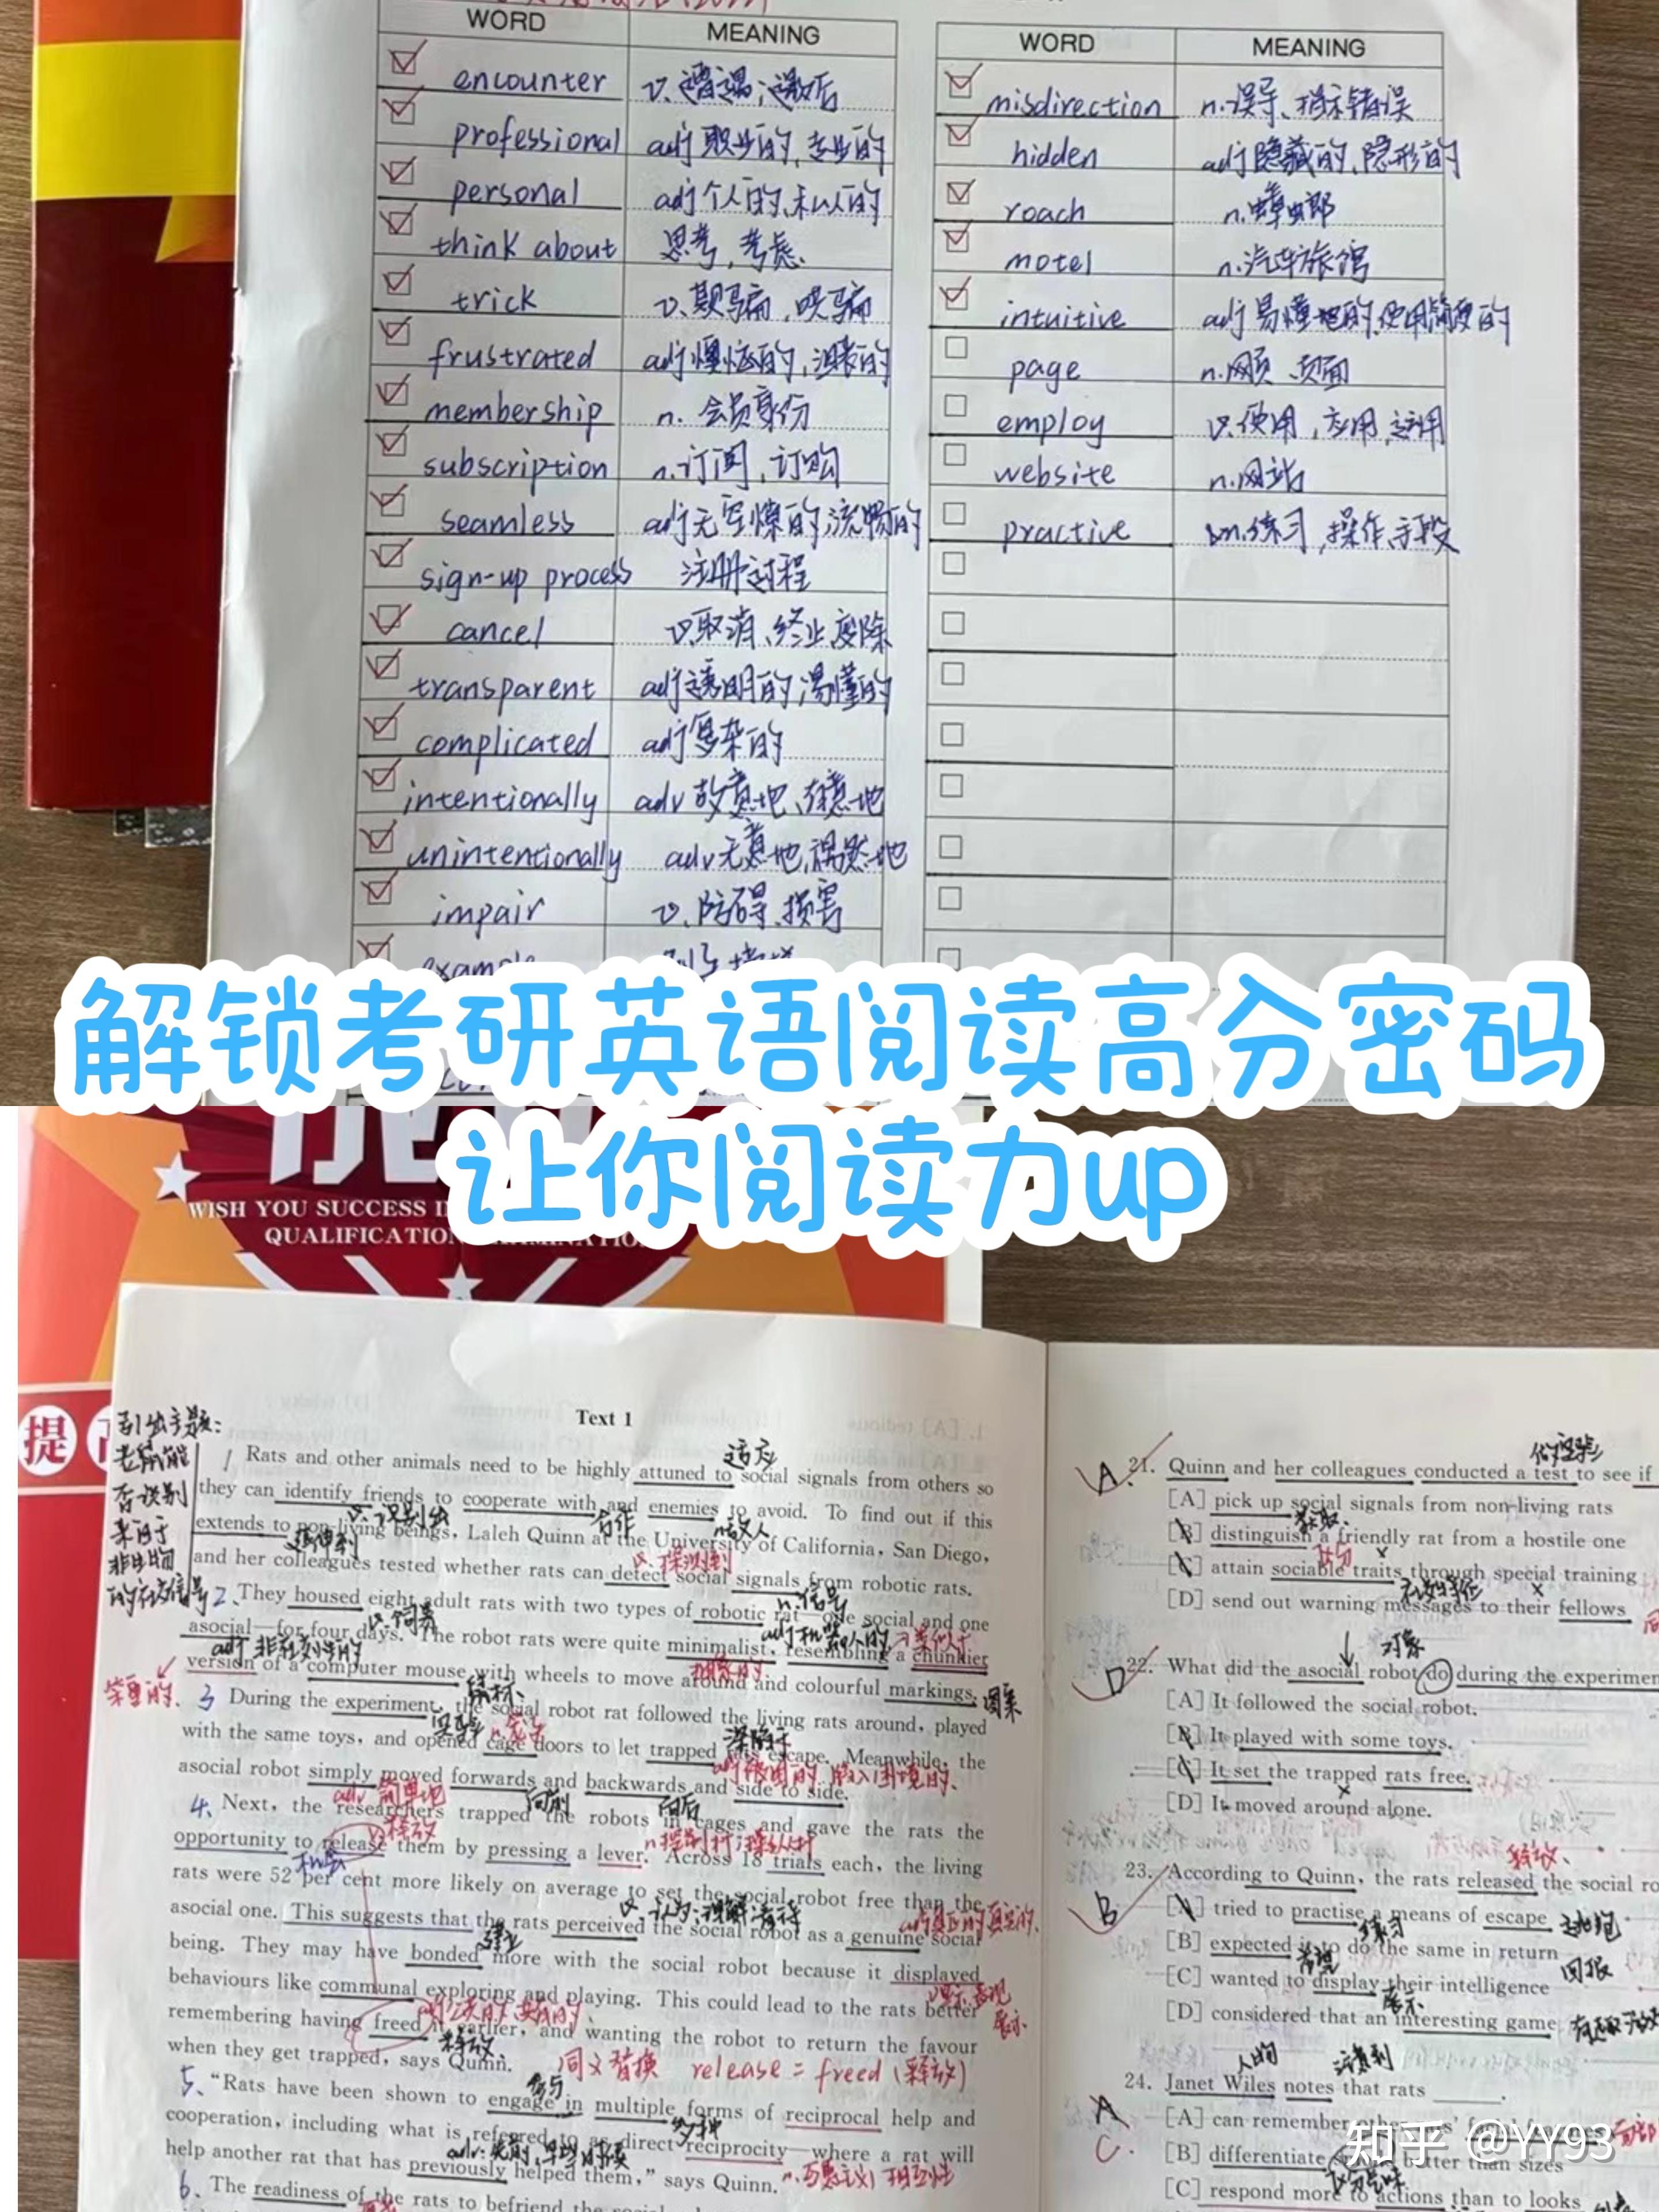 WORD MEANING
encounter v.遭遇;邂逅
professional adj 职业的,专业的
personal adj 个人的、私人的
think about 思考,考虑.
trick v.欺骗,哄骗
frustrated adj 懊恼的,沮丧的
membership n. 会员身份
subscription n.订阅,订购
seamless adj 无空隙的,流畅的
sign-up process 注册过程
cancel v.取消、终止,废除
transparent adj 透明的,易懂的
complicated adj 复杂的
intentionally adv 故意地、有意地
unintentionally adv 无意地,偶然地
impair v.妨碍、损害
example
WORD MEANING
misdirection n.误导、指示错误
hidden adj 隐藏的、隐形的
roach n.蟑螂
motel n.汽车旅馆
intuitive adj 易懂的,使用简便的
page n.网页、页面
employ v.使用,应用,运用
website n.网站
practive n.练习,操作,手段
解锁考研英语阅读高分密码
让你阅读力up
WISH YOU SUCCESS
QUALIFICATION
提
引出主题:
老鼠能
否识别
来自于
非生物
的社交信号
Text 1
适应
1 Rats and other animals need to be highly attuned to social signals from others so
they can identify friends to cooperate with and enemies to avoid. To find out if this
v.识别出 合作 n.敌人
extends to non-living beings, Laleh Quinn at the University of California, San Diego,
延伸到 v.探测到
and her colleagues tested whether rats can detect social signals from robotic rats.
n.信号
2、They housed eight adult rats with two types of robotic rat—one social and one
v.饲养 adj 机器人的
asocial—for four days. The robot rats were quite minimalist, resembling a chunkier
adj 非社交性的 类似于
version of a computer mouse with wheels to move around and colourful markings.
笨重的、 鼠标、 图案
3 During the experiment, the social robot rat followed the living rats around, played
实验
with the same toys, and opened cage doors to let trapped rats escape. Meanwhile, the
asocial robot simply moved forwards and backwards and side to side.
adv 简单地 向前 向后
4、Next, the researchers trapped the robots in cages and gave the rats the
释放
opportunity to release them by pressing a lever. Across 18 trials each, the living
机会
rats were 52 per cent more likely on average to set the social robot free than the
asocial one. This suggests that the rats perceived the social robot as a genuine social
建立
being. They may have bonded more with the social robot because it displayed
behaviours like communal exploring and playing. This could lead to the rats better
展示
remembering having freed it earlier, and wanting the robot to return the favour
释放
when they get trapped, says Quinn.
同义替换 release = freed (释放)
参与
5、“Rats have been shown to engage in multiple forms of reciprocal help and
多种
cooperation, including what is referred to as direct reciprocity—where a rat will
help another rat that has previously helped them,” says Quinn.
6、The readiness of the rats to befriend the social
做实验
A 21. Quinn and her colleagues conducted a test to see if
[A] pick up social signals from non-living rats
获取
[B] distinguish a friendly rat from a hostile one
[C] attain sociable traits through special training
[D] send out warning messages to their fellows
对象
D 22. What did the asocial robot do during the experiment
[A] It followed the social robot.
[B] It played with some toys.
[C] It set the trapped rats free.
[D] It moved around alone.
释放、
B 23. According to Quinn, the rats released the social ro
[A] tried to practise a means of escape 逃跑
练习
[B] expected it to do the same in return 回报
希望
[C] wanted to display their intelligence
展示
[D] considered that an interesting game
人的 注意到
24. Janet Wiles notes that rats ______.
A
C.
[A] can remember other rats' facial features
[B] differentiate smells better than sizes
[C] respond more to actions than to looks
知乎 @YY93